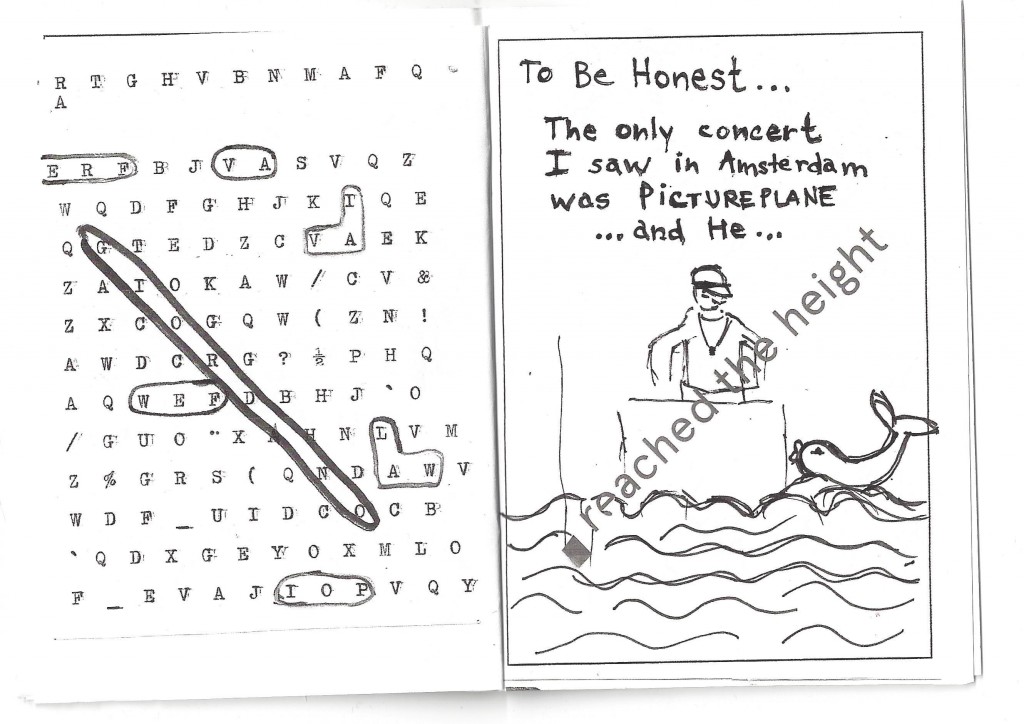 R T G H V B N M A F Q
A
E R F B J V A S V Q Z
W Q D F G H J K I Q E
Q G T E D Z C V A E K
Z A I O K A W / C V &
Z X C O G Q W ( Z N !
A W D C R G ? ½ P H Q
A Q W E F D B H J ` O
/ G U O ¨ X A H N L V M
Z % G R S ( Q N D A W V
W D F _ U I D C O C B
` Q D X G E Y O X M L O
F _ E V A J I O P V Q Y
To Be Honest...
The only concert
I saw in Amsterdam
was PiCTUREPLANE
...and He...
reached the height